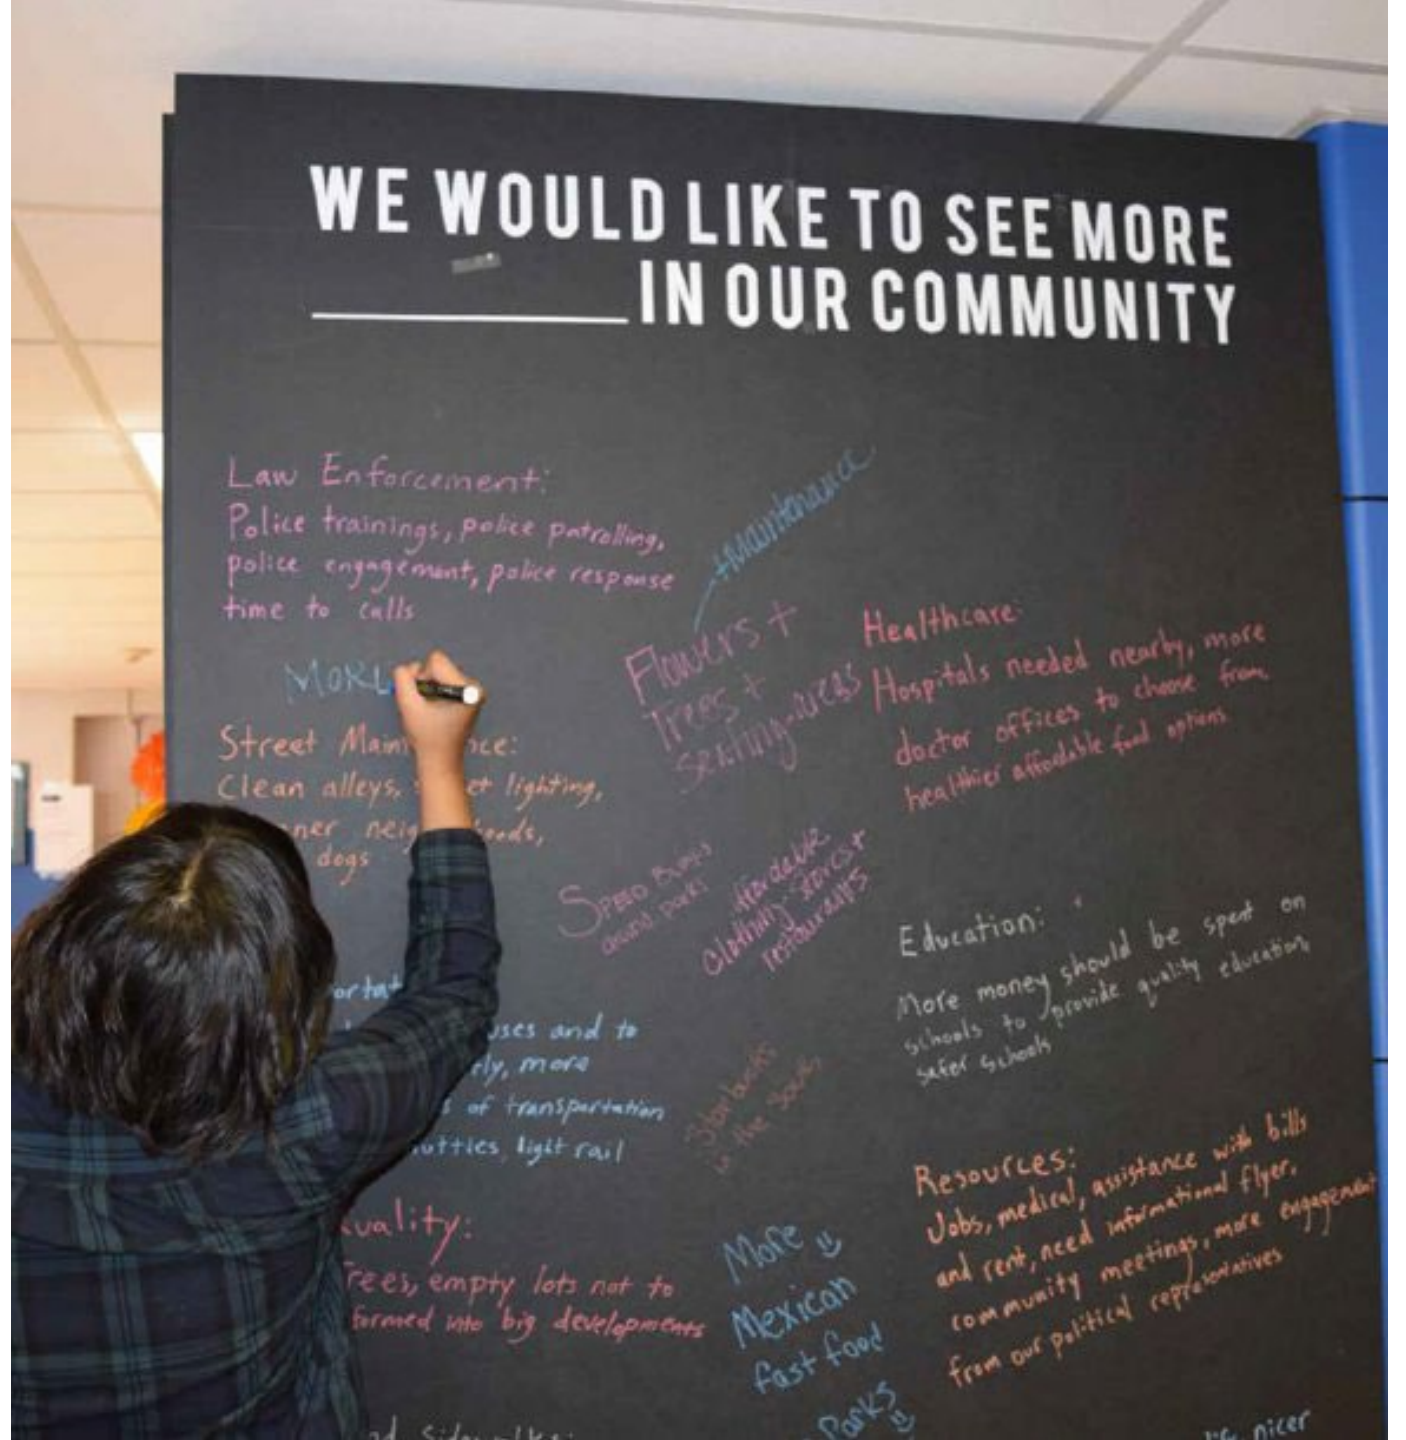 WE WOULD LIKE TO SEE MORE
IN OUR COMMUNITY
Law Enforcement:
Police trainings, police patrolling,
police engagement, police response
time to calls
MORE
Street
Clean alleys, lighting,
dogs
uses and to
more
of transportation
light rail
uality:
rees, empty lots not to
formed into big developments
+Maintenance
Flowers +
Trees +
seating areas
SPEED BUMPS
around parks
affordable
clothing stores +
restaurants
Starbucks
in the
More
Mexican
fast food
Parks
Healthcare:
Hospitals needed nearby, more
doctor offices to choose from,
healthier affordable food options
Education:
More money should be spent on
schools to provide quality education,
safer schools
Resources:
Jobs, medical, assistance with bills
and rent, need informational flyer,
community meetings, more engagement
from our political representatives
nicer